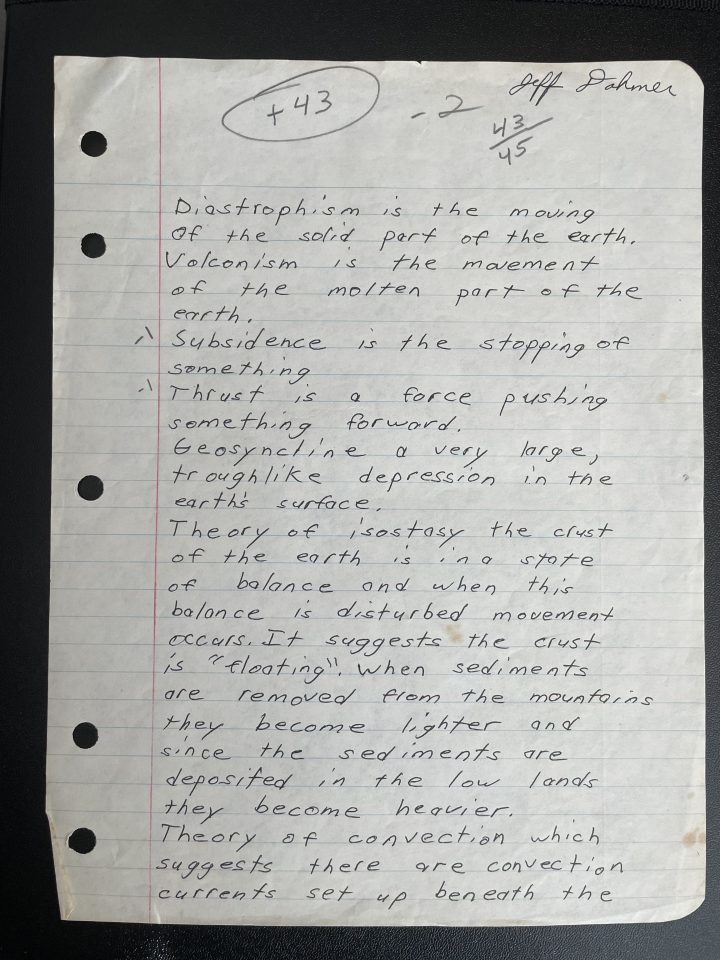 Jeff Dahmer
+43
-2
43/45
Diastrophism is the moving
of the solid part of the earth.
Volconism is the movement
of the molten part of the
earth.
-1 Subsidence is the stopping of
something
-1 Thrust is a force pushing
something forward.
Geosyncline a very large,
troughlike depression in the
earth's surface.
Theory of isostasy the crust
of the earth is in a state
of balance and when this
balance is disturbed movement
occurs. It suggests the crust
is "floating". When sediments
are removed from the mountains
they become lighter and
since the sediments are
deposited in the low lands
they become heavier.
Theory of convection which
suggests there are convection
currents set up beneath the